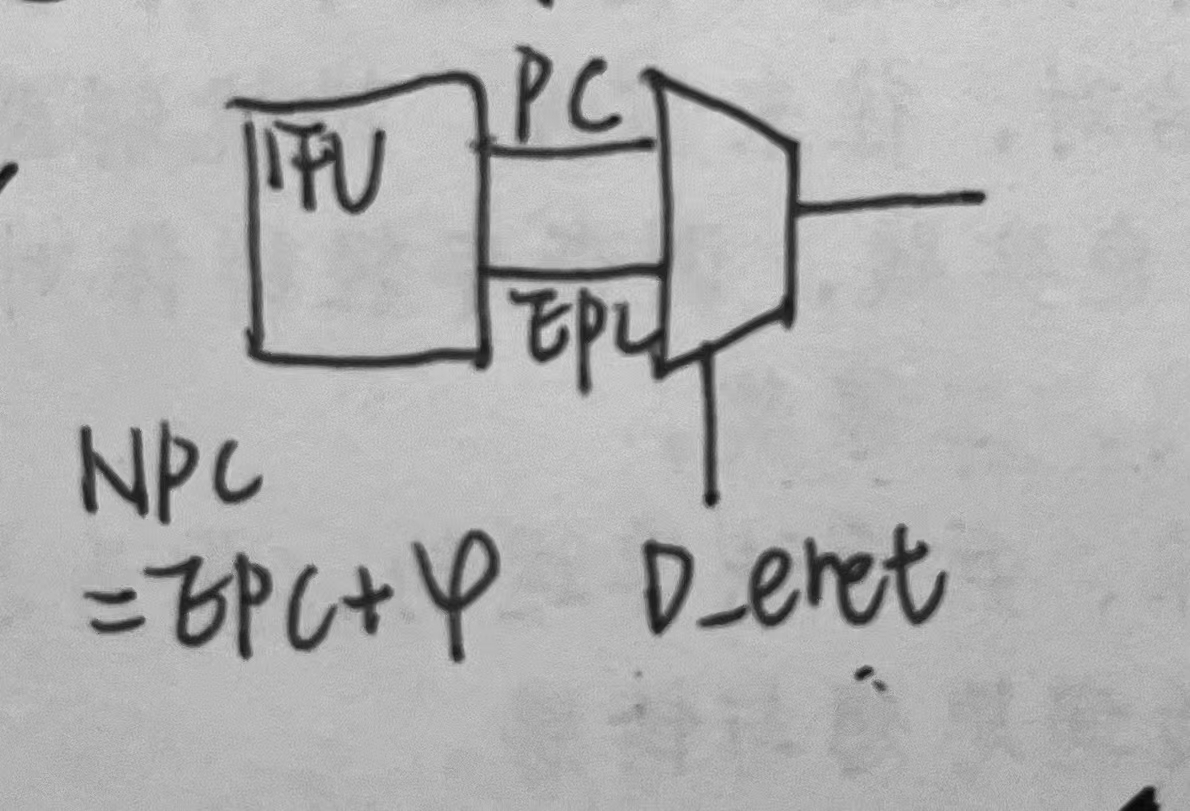 PC
IFU
EPC
NPC
=EPC+4
D_eret